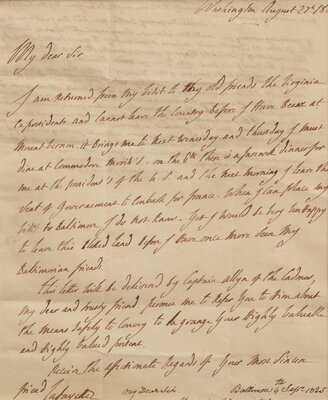 Washington August 27th 18
My dear Sir
I am returned from my Visit to My old friends the Virginia
Ex presidents and Cannot leave the Country Before I Have Been at
Mount Vernon. it Brings me to Next Wenesday and thursday I must
dine at Commodore Morris's. on the 6th there is a farewell dinner for
me at the president's of the U. S. and the Next Morning I leave the
Seat of Government to Embark for france. When I Can place my
Visit to Baltimore I do not know. Yet I would be Very Unhappy
to leave this Blessed land Before I Once more Seen My
Baltimorian friends.
this letter will be delivered by Captain allyn of the Cadmus,
My dear and trusty friend permit me to Refer You to Him about
the means Safely to Convey to Lagrange Your Highly Valuable
and Highly Valued present.
Receive the affectionate Regards of Your Most Sincere
friend Lafayette
my Dear Sir Baltimore 4th Sept. 1825